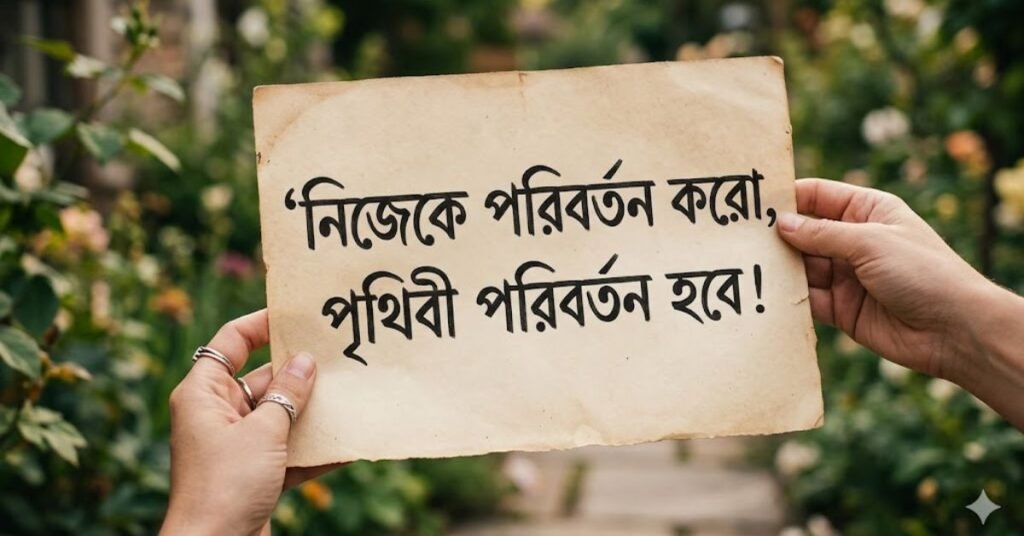 ‘নিজেকে পরিবর্তন করো,
পৃথিবী পরিবর্তন হবে!